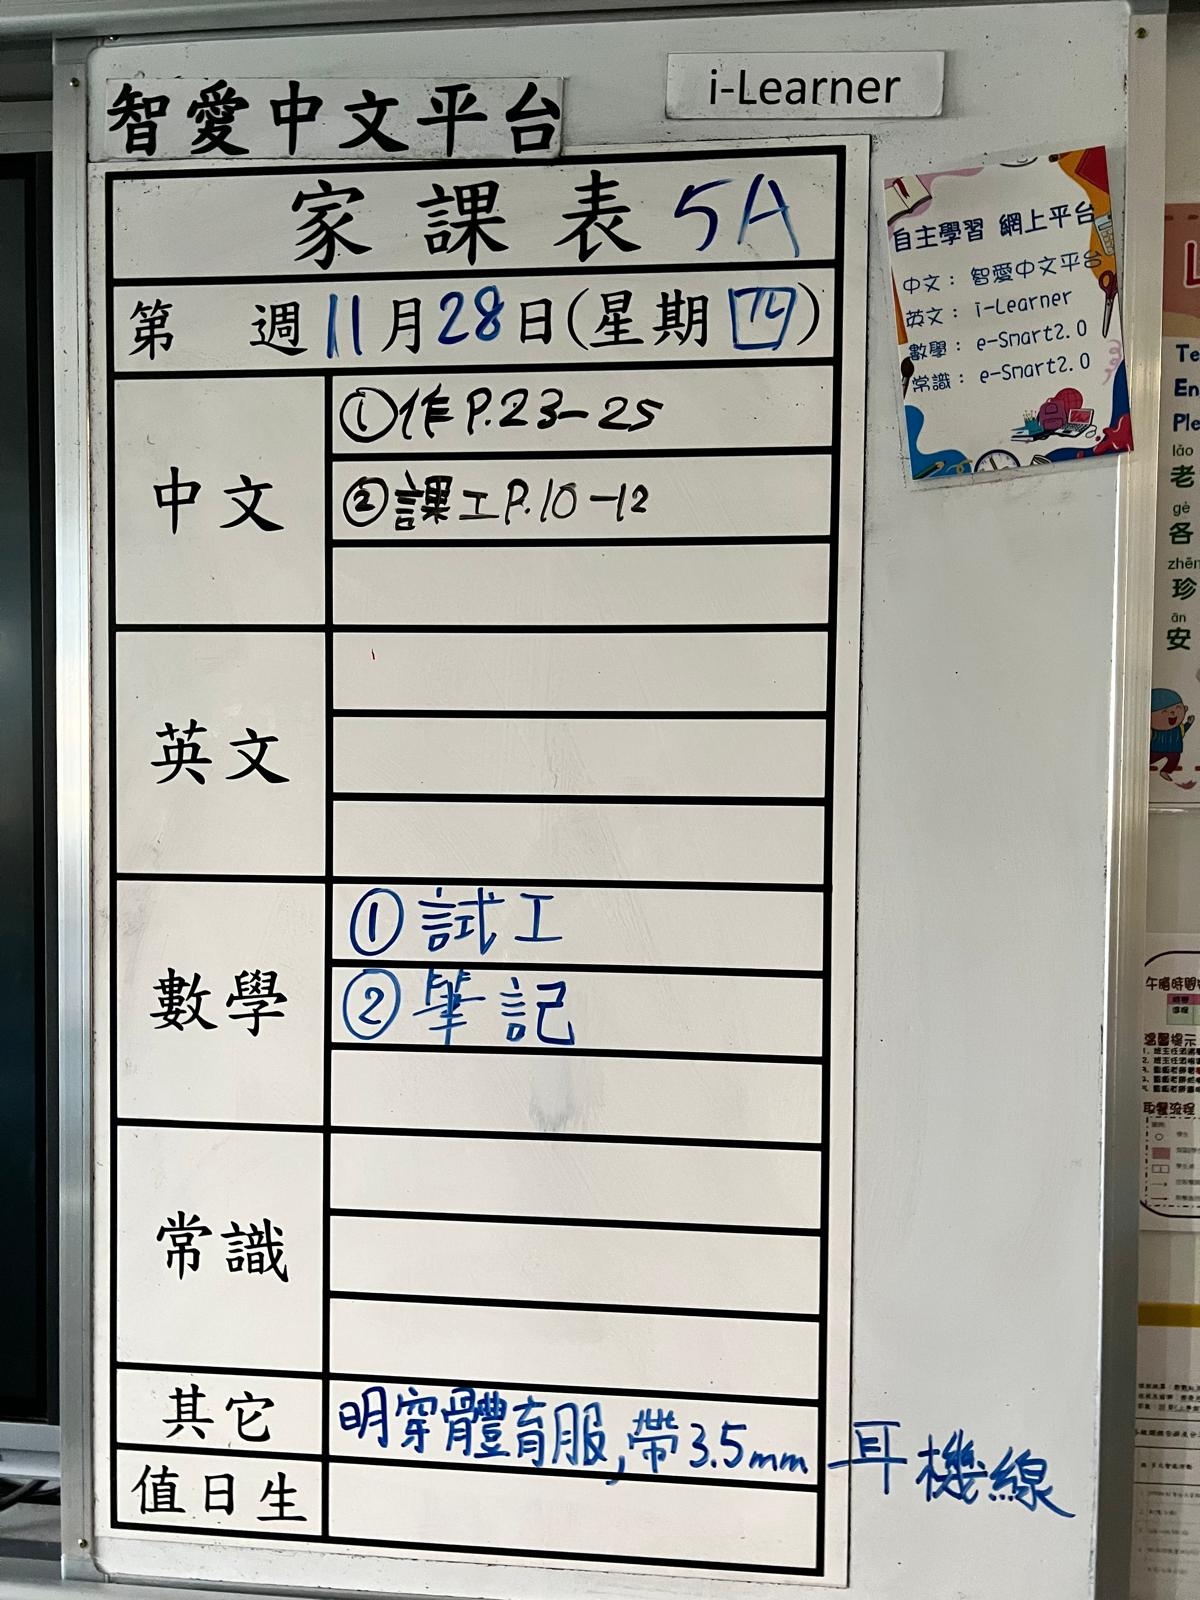 智愛中文平台
i-Learner
家課表 5A
第 週 11月28日(星期四)
中文
①作P.23-25
②課工P.10-12
英文
數學
①試工
②筆記
常識
其它
明穿體育服,帶3.5mm耳機線
值日生
自主學習 網上平台
中文：智愛中文平台
英文：i-Learner
數學：e-Smart2.0
常識：e-Smart2.0
Te
En
Ple
lǎo
老
gè
各
zhēn
珍
ān
安
午膳時間
溫馨提示
取餐流程